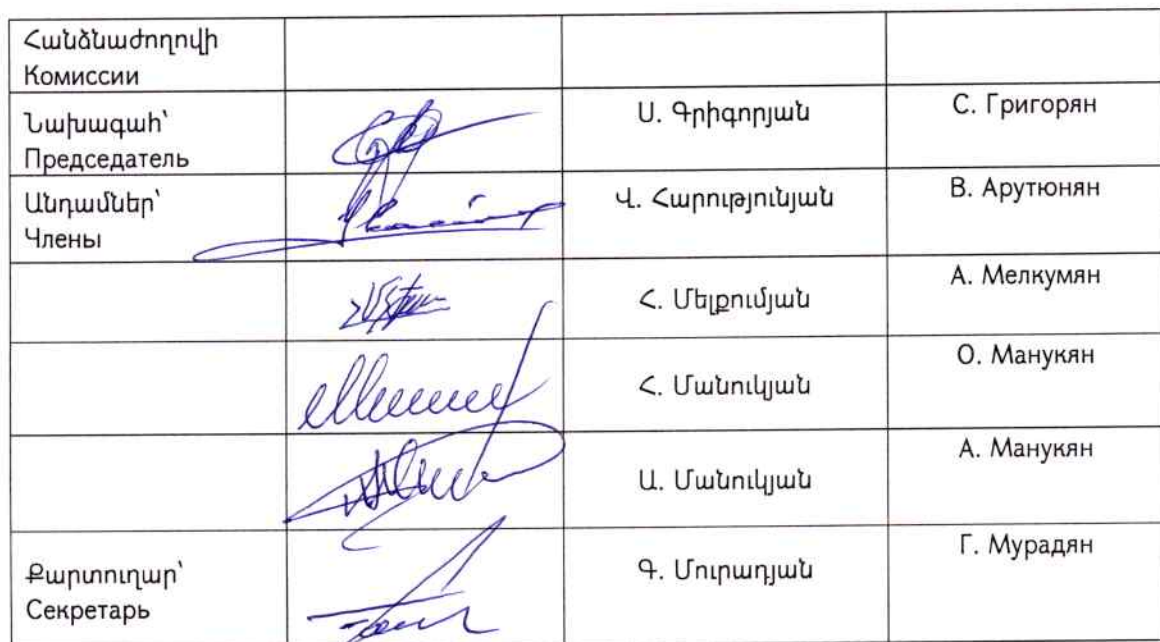 Հանձնաժողովի
Комиссии
Նախագահ՝
Председатель
Ս. Գրիգորյան
С. Григорян
Անդամներ՝
Члены
Վ. Հարությունյան
В. Арутюнян
Հ. Մելքումյան
А. Мелкумян
Հ. Մանուկյան
О. Манукян
Ա. Մանուկյան
А. Манукян
Քարտուղար՝
Секретарь
Գ. Մուրադյան
Г. Мурадян